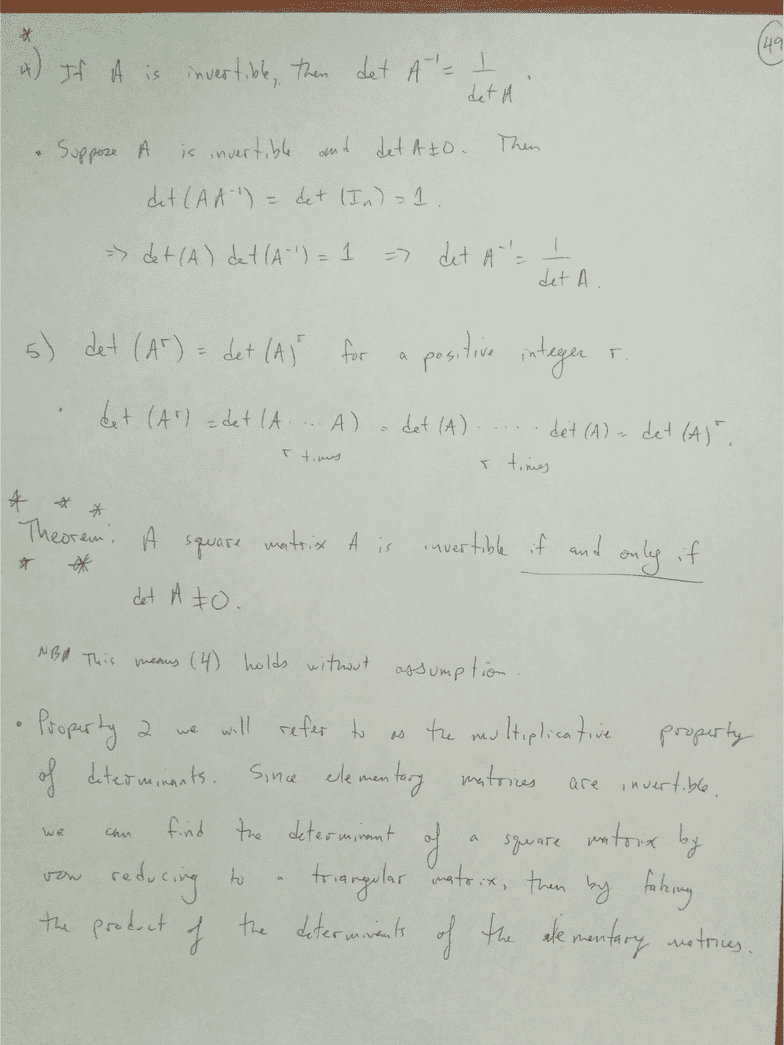 49
*
4) If A is invertible, then det A⁻¹ = 1/det A.
• Suppose A is invertible and det A ≠ 0. Then
det(AA⁻¹) = det(Iₙ) = 1.
=> det(A) det(A⁻¹) = 1 => det A⁻¹ = 1/det A.
5) det (Aʳ) = det (A)ʳ for a positive integer r.
• det (Aʳ) = det (A ··· A) = det (A) ····· det (A) = det (A)ʳ.
r times r times
* * *
Theorem: A square matrix A is invertible if and only if
* *
det A ≠ 0.
NB This means (4) holds without assumption.
• Property 2 we will refer to as the multiplicative property
of determinants. Since elementary matrices are invertible,
we can find the determinant of a square matrix by
row reducing to a triangular matrix, then by taking
the product of the determinants of the elementary matrices.